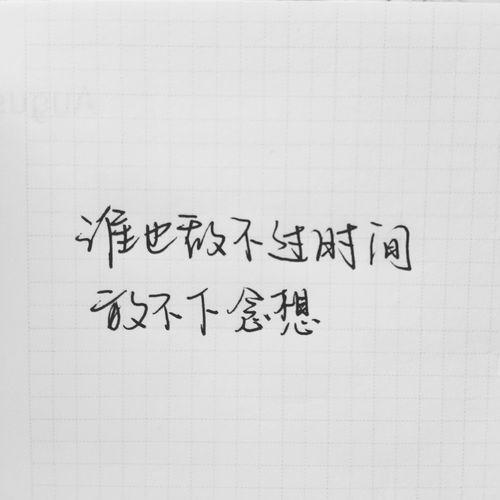 谁也敌不过时间
放不下念想